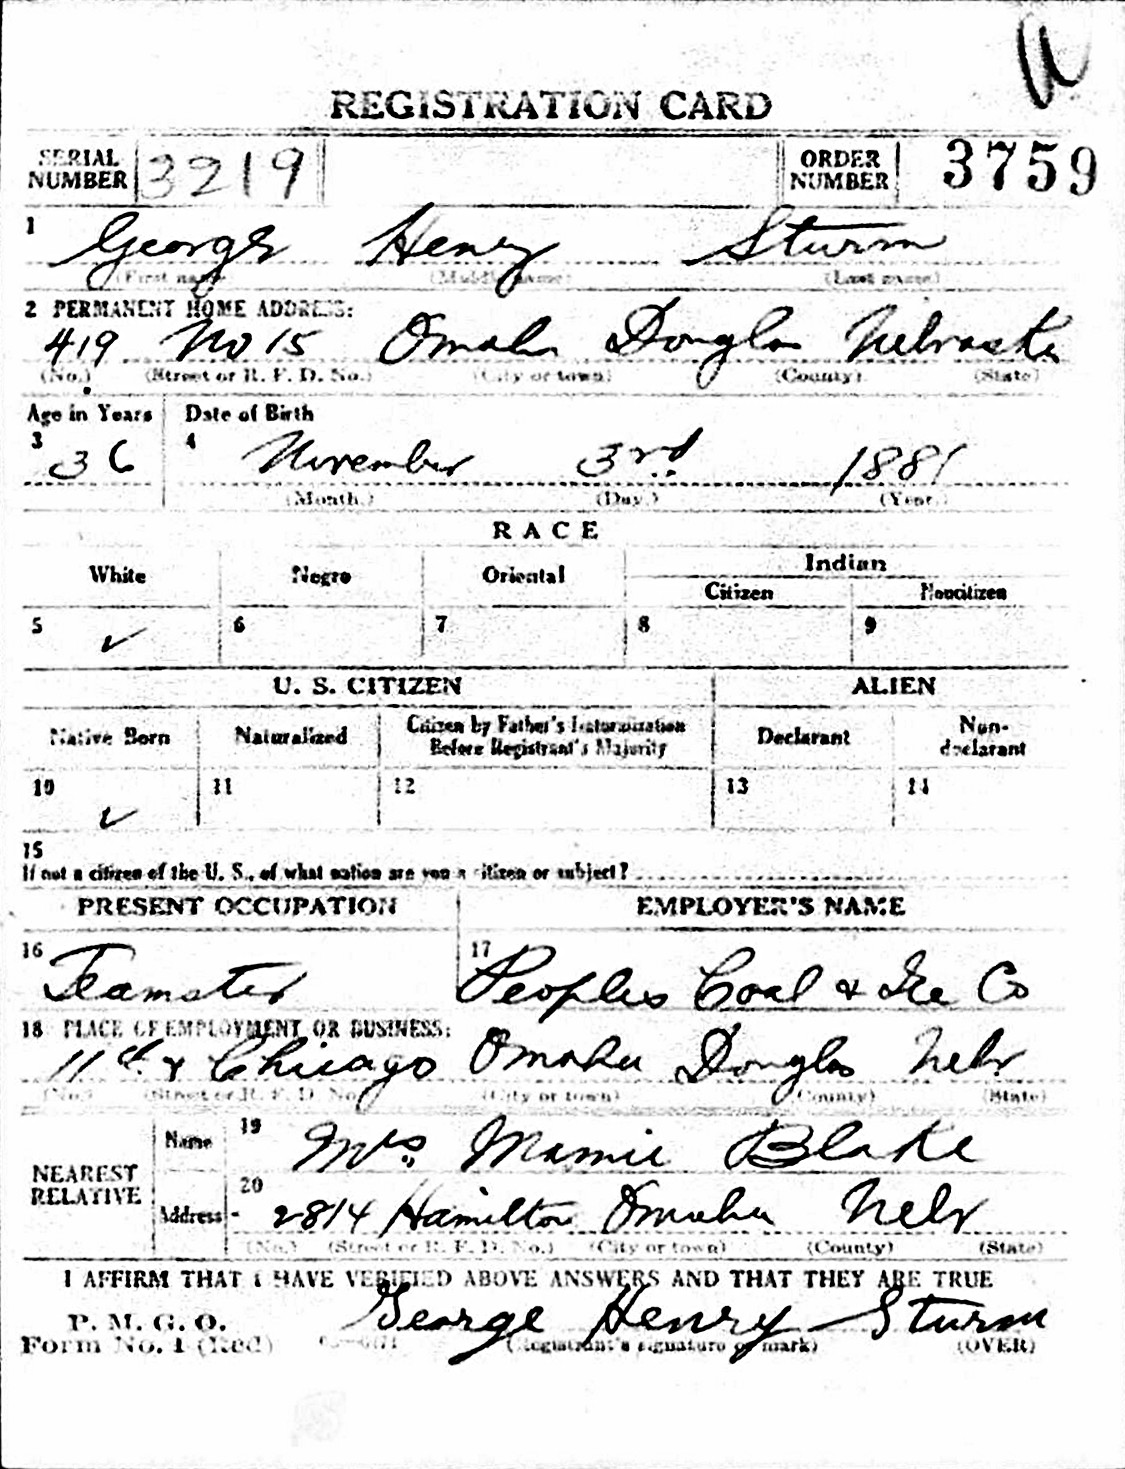 REGISTRATION CARD
SERIAL NUMBER 3219 ORDER NUMBER 3759
1 George Henry Sturm
(First name) (Middle name) (Last name)
2 PERMANENT HOME ADDRESS:
419 No 15 Omaha Douglas Nebraska
(No.) (Street or R. F. D. No.) (City or town) (County) (State)
Age in Years Date of Birth
3 36 4 November 3rd 1881
(Month.) (Day.) (Year.)
RACE
White Negro Oriental Indian
Citizen Noncitizen
5 ✓ 6 7 8 9
U. S. CITIZEN ALIEN
Native Born Naturalized Citizen by Father's Naturalization Before Registrant's Majority Declarant Non-declarant
10 ✓ 11 12 13 14
15
If not a citizen of the U. S., of what nation are you a citizen or subject?
PRESENT OCCUPATION EMPLOYER'S NAME
16 Teamster 17 Peoples Coal & Ice Co
18 PLACE OF EMPLOYMENT OR BUSINESS:
11th & Chicago Omaha Douglas Nebr
(No.) (Street or R. F. D. No.) (City or town) (County) (State)
NEAREST RELATIVE
Name 19 Mrs. Mamie Blake
Address 20 2814 Hamilton Omaha Nebr
(No.) (Street or R. F. D. No.) (City or town) (County) (State)
I AFFIRM THAT I HAVE VERIFIED ABOVE ANSWERS AND THAT THEY ARE TRUE
P. M. G. O.
Form No. 1 (Red) George Henry Sturm
(Registrant's signature or mark) (OVER)